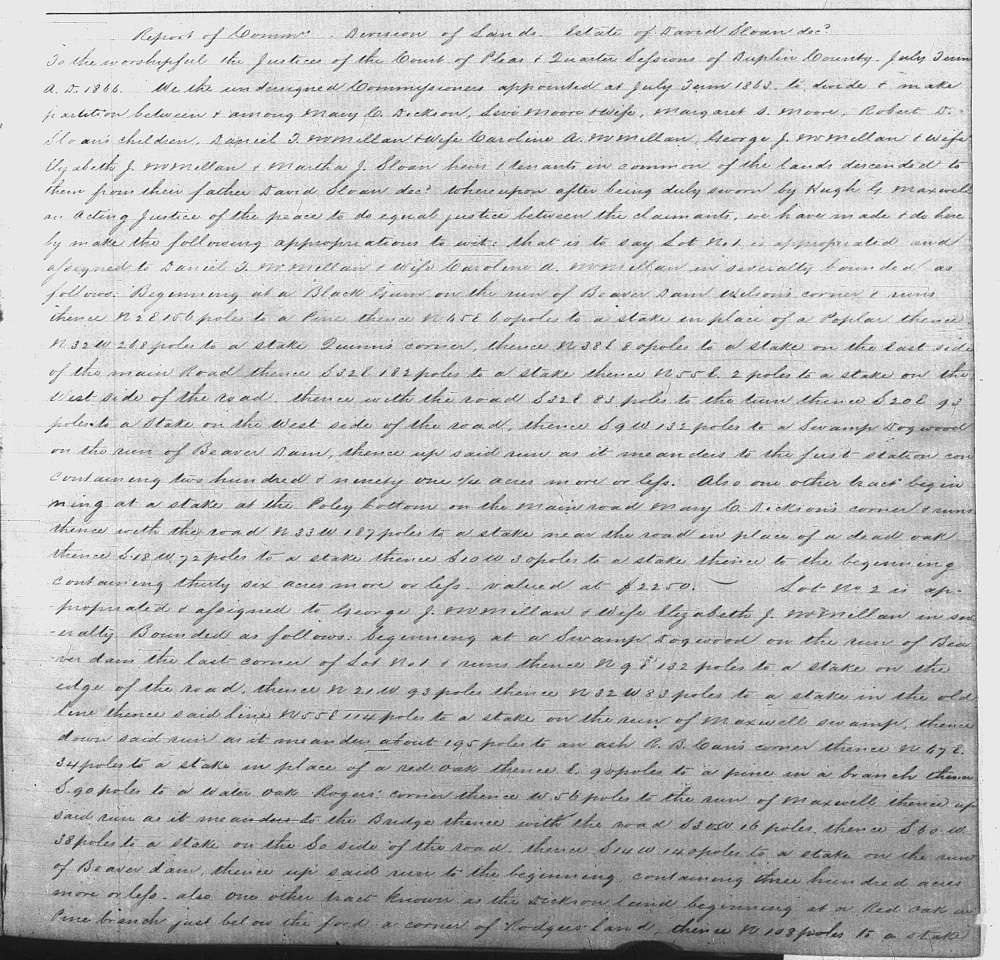 Report of Comrs. Division of Lands Estate of David Sloan decd
To the worshipful the Justices of the Court of Pleas & Quarter Sessions of Duplin County July Term
A. D. 1866 We the undersigned Commissioners appointed at July Term 1863 to divide & make
partition between & among Mary C. Dickson, Levi Moore & wife, Margaret S. Moore, Robert D.
Sloan's children, Daniel T. McMillan & Wife Caroline A. McMillan, George J. McMillan & Wife
Elyzabeth J. McMillan & Martha J. Sloan heirs & tenants in common of the lands descended to
them from their father David Sloan decd Whereupon after being duly sworn by Hugh G Maxwell
an Acting Justice of the peace to do equal justice between the claimants, we have made & do here
by make the following appropriations to wit: that is to say Lot No 1 is appropriated and
assigned to Daniel T. McMillan & Wife Caroline A. McMillan in severalty bounded as
follows. Beginning at a Black Gum on the run of Beaver Dam Wilson's corner & runs
thence N 2 E 156 poles to a Pine thence N 65 E 60 poles to a stake in place of a Poplar thence
N 32 W 268 poles to a stake Quinn's corner, thence N 38 E 80 poles to a stake on the East side
of the main Road thence S 32 E 182 poles to a stake thence N 55 E. 2 poles to a stake on the
West side of the road, thence with the road S 32 E 83 poles to the turn thence S 20 E 93
poles to a Stake on the West side of the road, thence S 9 W 132 poles to a Swamp Dogwood
on the run of Beaver Dam, thence up said run as it meanders to the first station con
containing two hundred & ninety one acres more or less. Also one other tract begin
ning at a stake at the Poley bottom on the main road Mary C. Dickson's corner & runs
thence with the road N 33 W 187 poles to a stake near the road in place of a dead oak
thence S 18 W 72 poles to a stake thence S 10 W 30 poles to a stake thence to the beginning
containing thirty six acres more or less valued at $2250. Lot No 2 is ap-
propriated & assigned to George J. McMillan & Wife Elizabeth J. McMillan in sev
-eralty Bounded as follows: beginning at a Swamp Dogwood on the run of Bea
ver dam the last corner of Lot No 1 & runs thence N 9 E 132 poles to a stake on the
edge of the road, thence N 20 W 93 poles thence N 32 W 83 poles to a stake in the old
line thence said line N 55 E 114 poles to a stake on the run of Maxwell swamp, thence
down said run as it meanders about 195 poles to an ash corner thence N 67 E.
34 poles to a stake in place of a red oak thence E. 90 poles to a pine in a branch thence
S. 90 poles to a Water oak Rogers' corner thence W 56 poles to the run of Maxwell thence up
said run as it meanders to the Bridge thence with the road S 30 W 16 poles, thence S 60 W
38 poles to a stake on the So side of the road thence S 14 W 140 poles to a stake on the run
of Beaver dam, thence up said run to the beginning, containing three hundred acres
more or less. also one other tract known as the Dickson land beginning at a Red Oak in
Pine branch just below the ford a corner of Rodgers land, thence N 108 poles to a stake